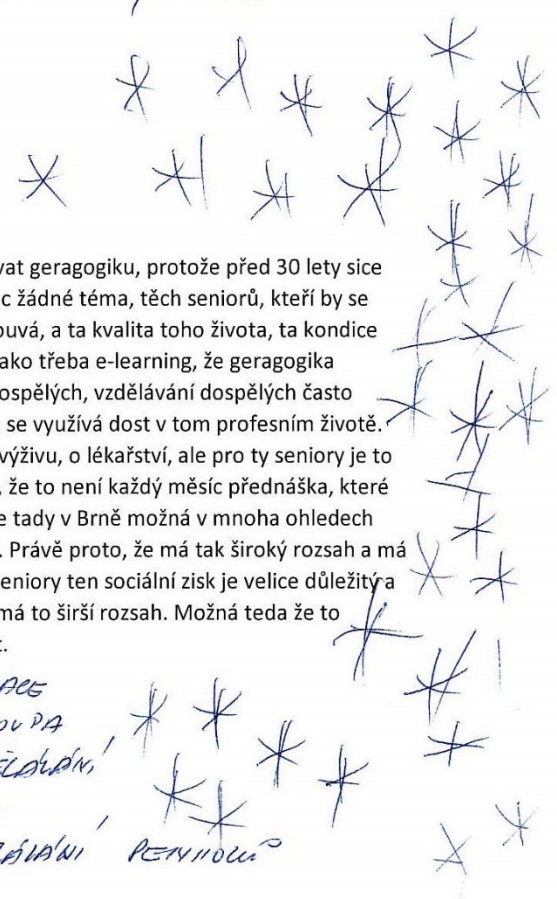 vat geragogiku, protože před 30 lety sice
c žádné téma, těch seniorů, kteří by se
ouvá, a ta kvalita toho života, ta kondice
ako třeba e-learning, že geragogika
ospělých, vzdělávání dospělých často
se využívá dost v tom profesním životě.
výživu, o lékařství, ale pro ty seniory je to
, že to není každý měsíc přednáška, které
e tady v Brně možná v mnoha ohledech
. Právě proto, že má tak široký rozsah a má
eniory ten sociální zisk je velice důležitý a
má to širší rozsah. Možná teda že to